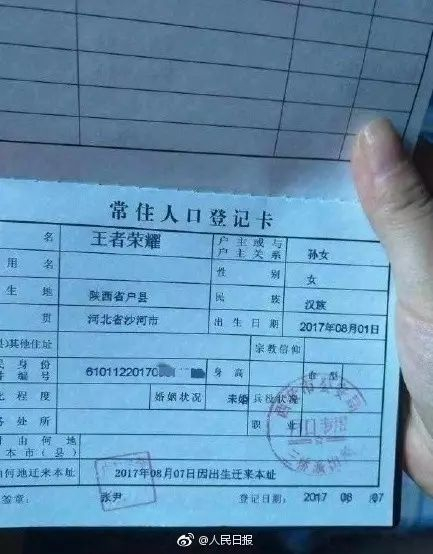 常住人口登记卡
名 王者荣耀 户主或与户主关系 孙女
用名 性别 女
生地 陕西省户县 民族 汉族
贯 河北省沙河市 出生日期 2017年08月01日
其他住址 宗教信仰
身份编号 6101122017 身高 血型
程度 婚姻状况 未婚 兵役状况
处所 职业
由何地本市(县)
何地迁来本址 2017年08月07日因出生迁来本址
签章: 张尹 登记日期: 2017 08 07
@人民日报